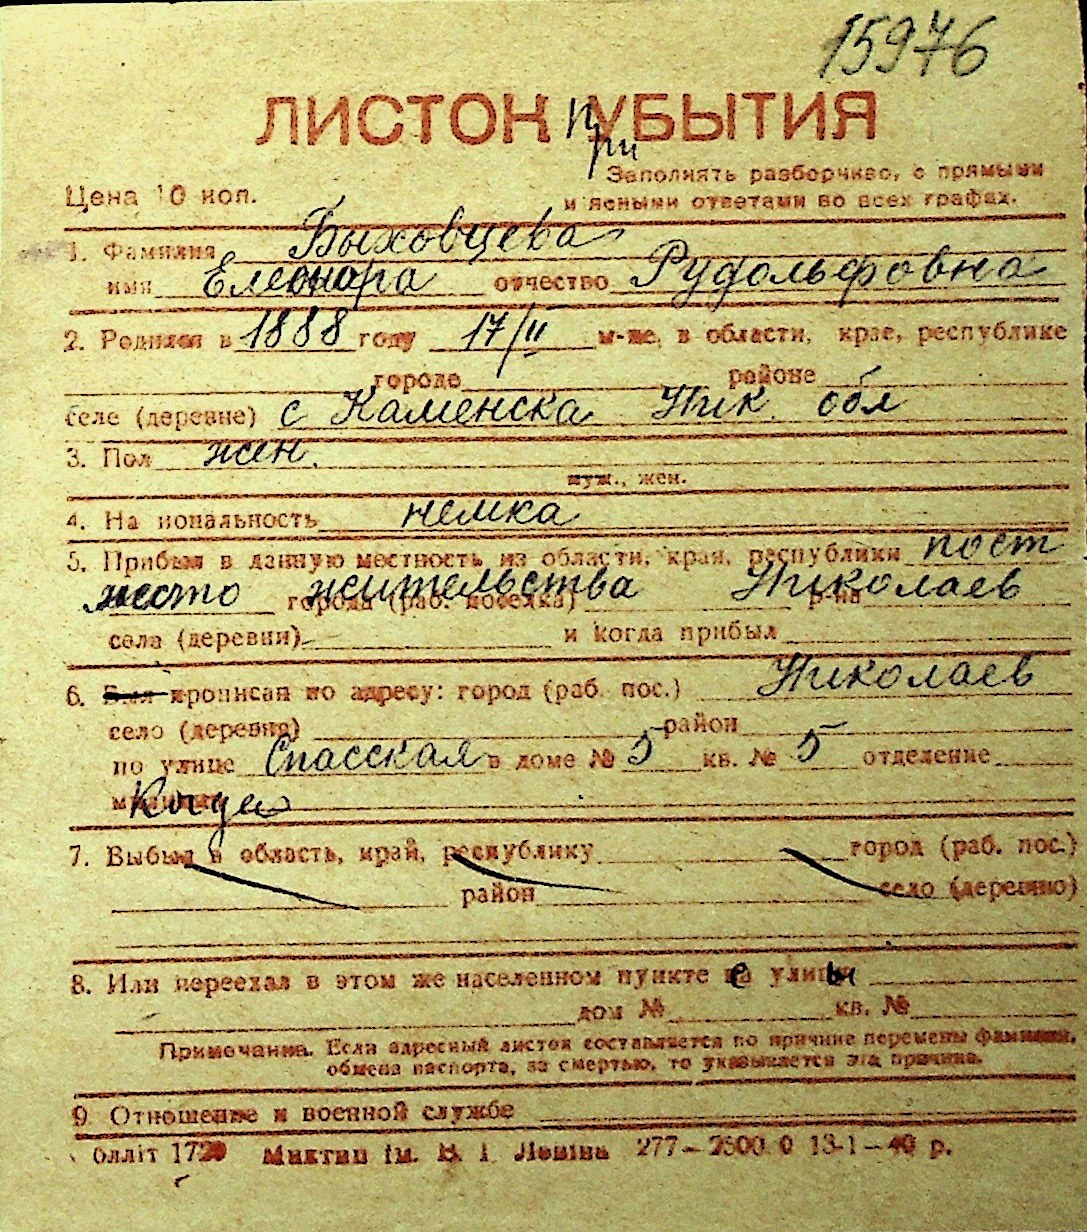 15976
ЛИСТОК при УБЫТИЯ
Заполнять разборчиво, с прямыми
Цена 10 коп.
и ясными ответами во всех графах.
1. Фамилия Быховцева
имя Елеонора отчество Рудольфовна
2. Родился в 1888 году 17/II м-це, в области, крае, республике
городе районе
селе (деревне) с Каменска Ник обл
3. Пол жен.
муж., жен.
4. Национальность немка
5. Прибыл в данную местность из области, края, республики пост
место жительства Николаев
города (раб. поселка) р-на
села (деревни) и когда прибыл
6. Был прописан по адресу: город (раб. пос.) Николаев
село (деревня) район
по улице Спасская в доме № 5 кв. № 5 отделение
милиции Когда
7. Выбыл в область, край, республику город (раб. пос.)
район село (деревню)
8. Или переехал в этом же населенном пункте с улицы
дом № кв. №
Примечание. Если адресный листок составляется по причине перемены фамилии,
обмена паспорта, за смертью, то указывается эта причина.
9. Отношение к военной службе
Облліт 1720 ім. В. І. Леніна 277–2500.0 13-1–40 р.